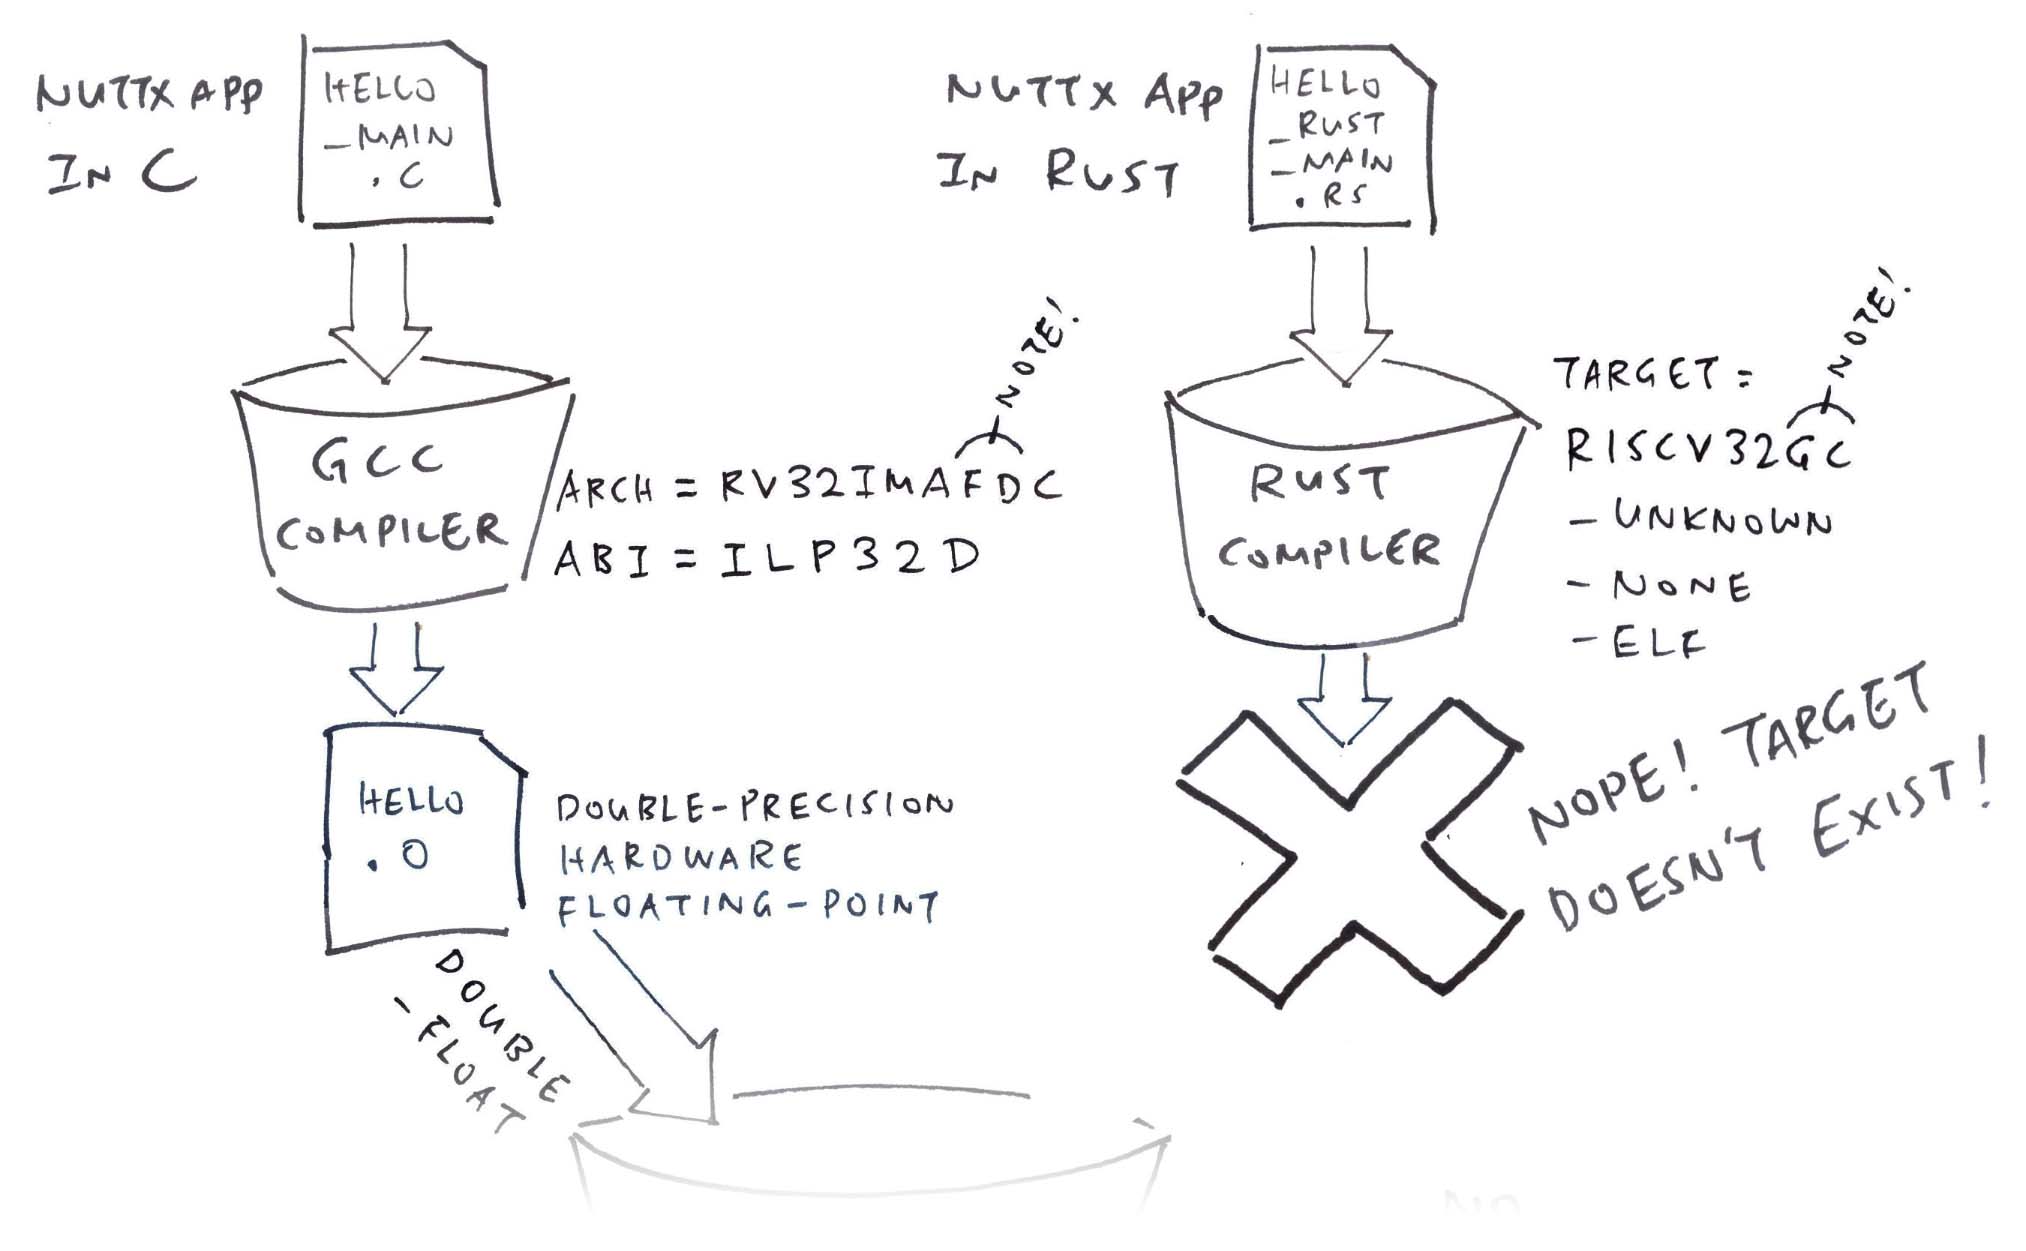 NUTTX APP
IN C
HELLO
_MAIN
.C
GCC
COMPILER
ARCH = RV32IMAFDC
NOTE!
ABI = ILP32D
HELLO
.O
DOUBLE-PRECISION
HARDWARE
FLOATING-POINT
DOUBLE
-FLOAT
NUTTX APP
IN RUST
HELLO
_RUST
_MAIN
.RS
RUST
COMPILER
TARGET =
RISCV32GC
NOTE!
-UNKNOWN
-NONE
-ELF
NOPE! TARGET
DOESN'T EXIST!